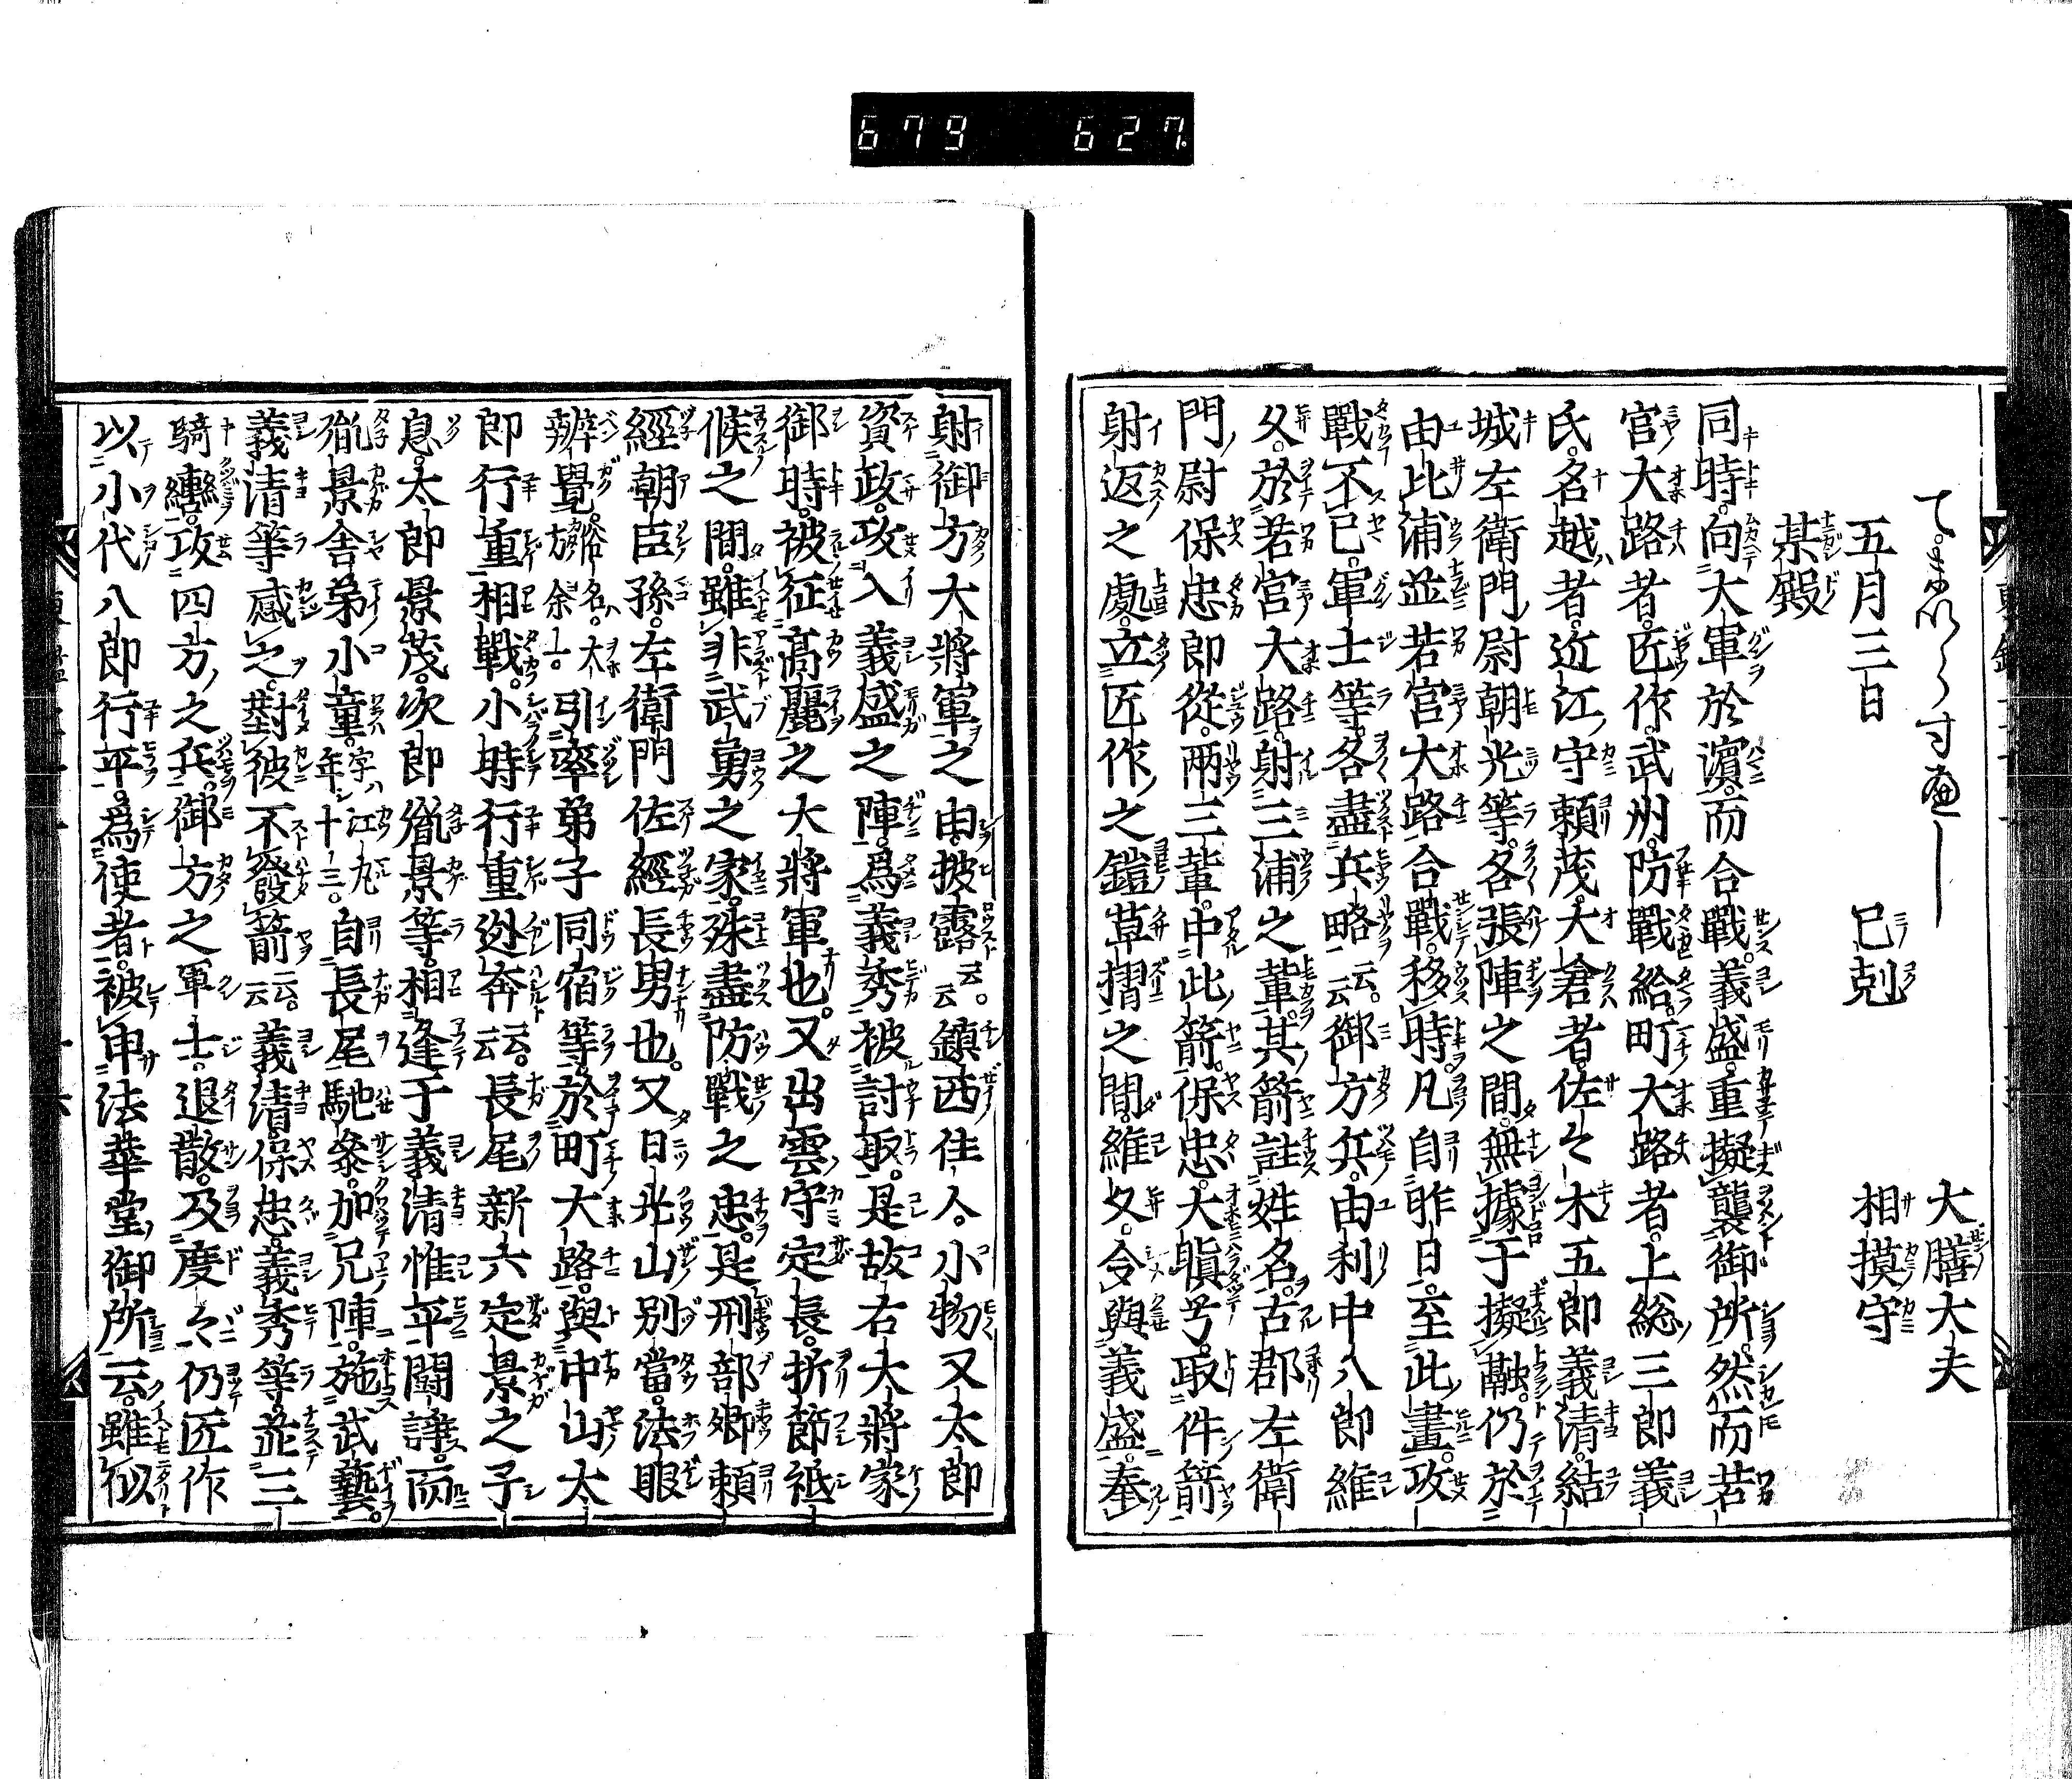 679 627
大膳大夫
五月三日 巳剋 相摸守
某殿
同時。向大軍於濵。而合戰。義盛。重擬襲御所。然而若
官大路者。匠作。武州。防戰給。町大路者。上総三郎義
氏。名越者。近江守頼茂。大倉者。佐々木五郎義清。結
城左衛門尉朝光等。各張陣之間。無據于擬融。仍於
由比浦並若宮大路合戰。移時。凡自昨日。至此晝。攻
戰不已。軍士等。各盡兵略云云。御方兵。由利中八郎維
久。於若宮大路。射三浦之輩。其箭註姓名。古郡左衛
門尉保忠郎從。兩三輩。中此箭。保忠。大瞋兮。取件箭
射返之處。立匠作之鎧草摺之間。維久。令與義盛。奉
射御方大將軍之由。披露云云。鎮西住人。小物又太郎
資政。攻入義盛之陣。爲義秀被討取。是故右大將家
御時。被征高麗之大將軍也。又出雲守定長。折節祇
候之間。雖非武勇之家。殊盡防戰之忠。是刑部卿頼
經朝臣孫。左衛門佐經長男也。又日光山別當。法眼
辨覺。俗名。大方余一。引率弟子同宿等。於町大路。與中山太
郎行重相戰。小時行重迯奔云云。長尾新六定景之子
息。太郎景茂。次郎胤景等。相逢于義清惟平鬪諍。而
胤景舎弟小童。字江丸年十三。自長尾馳参。加兄陣。施武藝。
義清等感之。對彼不發箭云云。義清。保忠。義秀等。並三
騎轡。攻四方之兵。御方之軍士。退散。及度々仍匠作
以小代八郎行平。爲使者。被申法華堂御所云。雖似